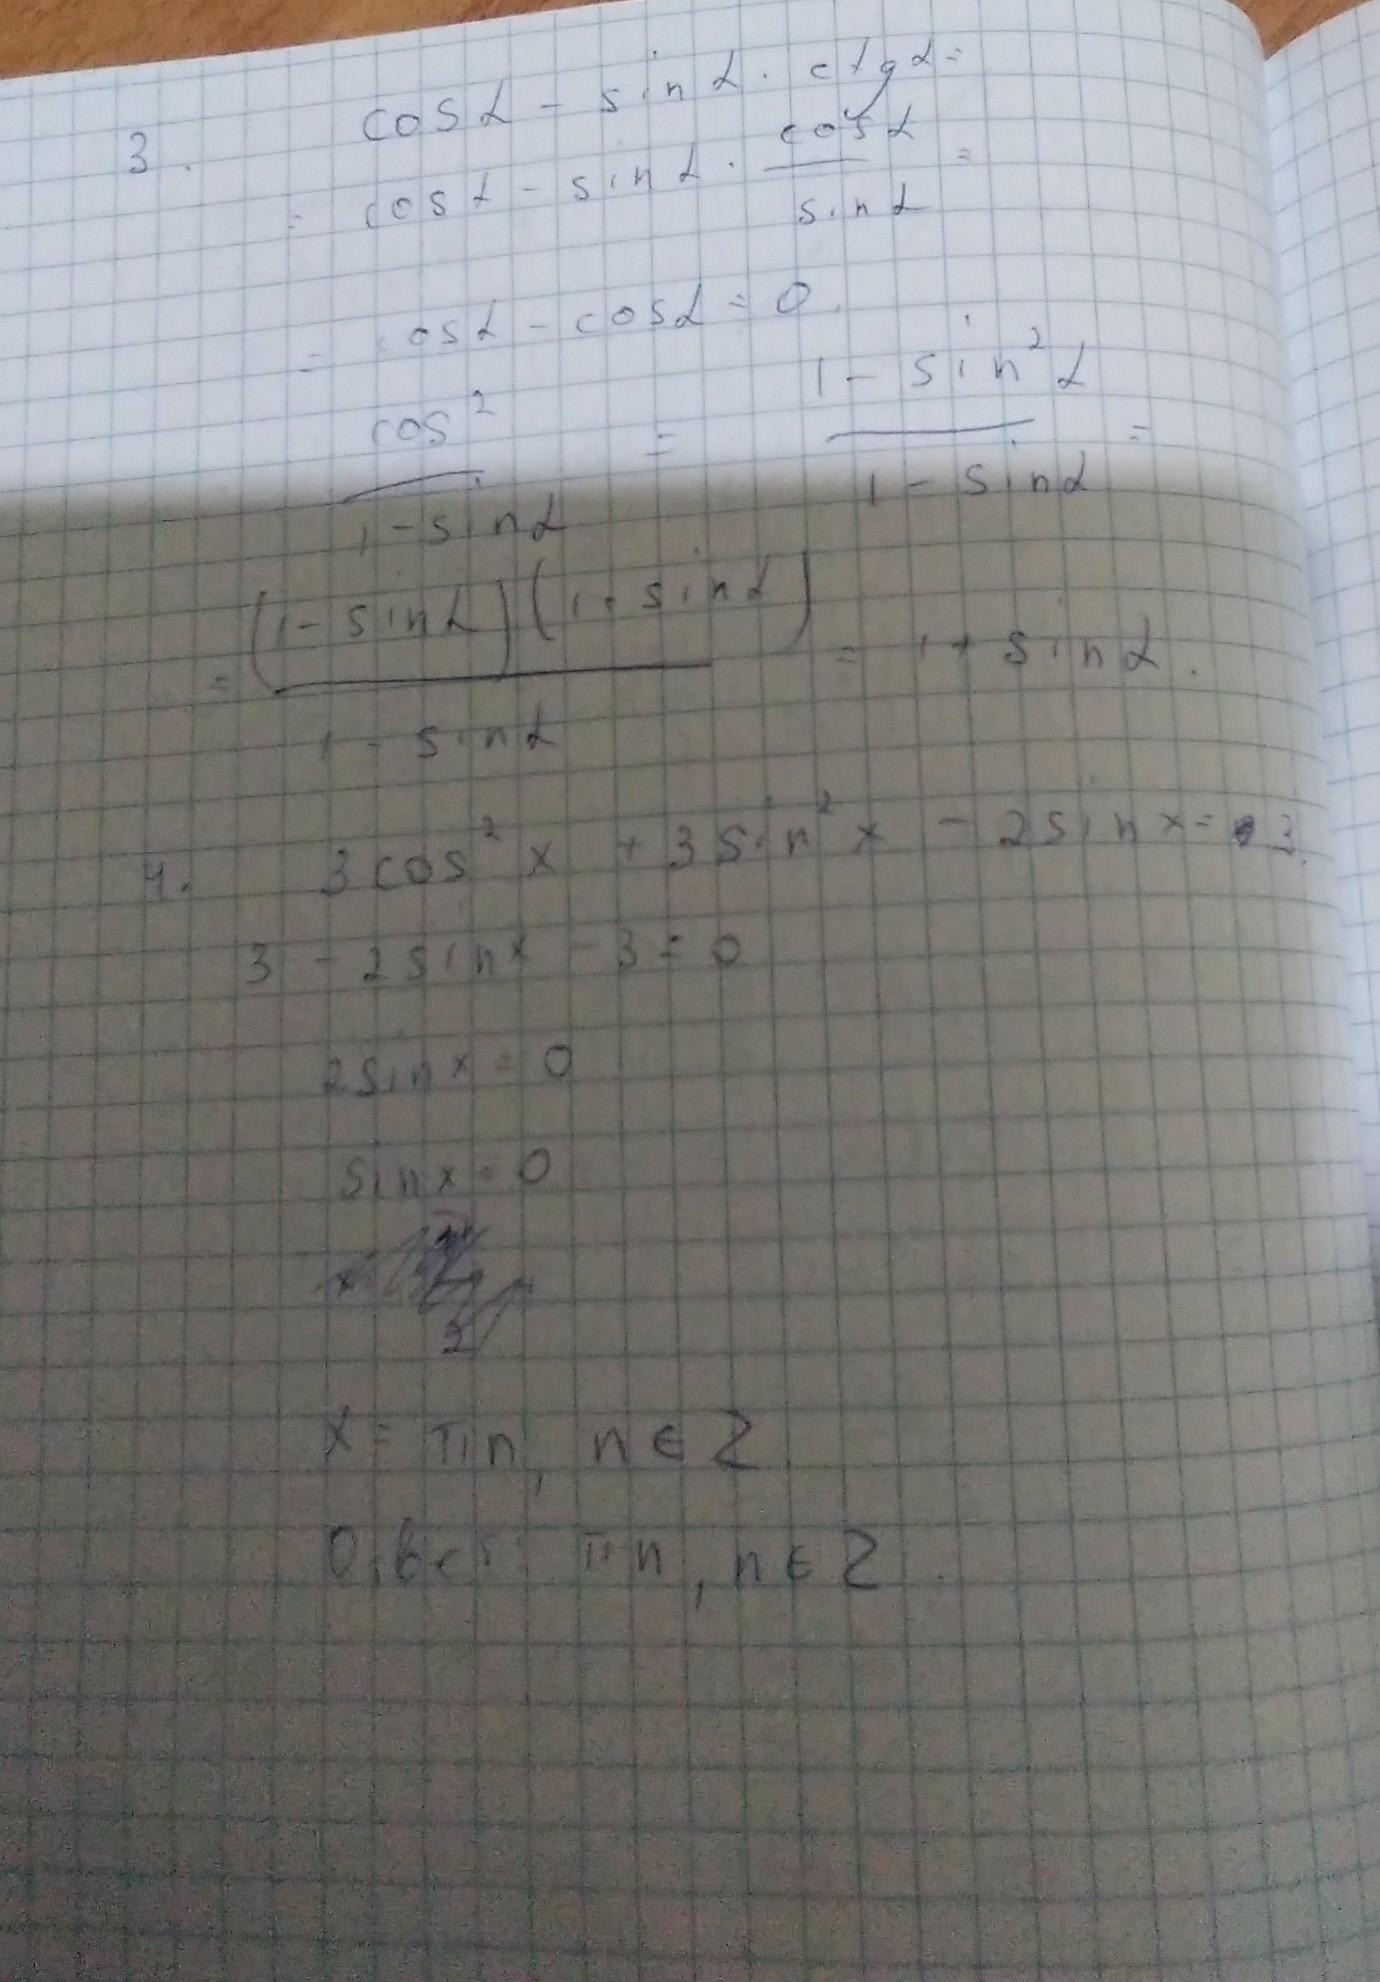 3. cos α - sin α · ctg α =
= cos α - sin α · cos α / sin α =
= cos α - cos α = 0.
cos² / 1 - sin α = 1 - sin² α / 1 - sin α =
= (1 - sin α)(1 + sin α) / 1 - sin α = 1 + sin α.
4. 3 cos² x + 3 sin² x - 2 sin x = 3.
3 - 2 sin x - 3 = 0
2 sin x = 0
sin x = 0
x = πn, n ∈ Z
Ответ: πn, n ∈ Z.